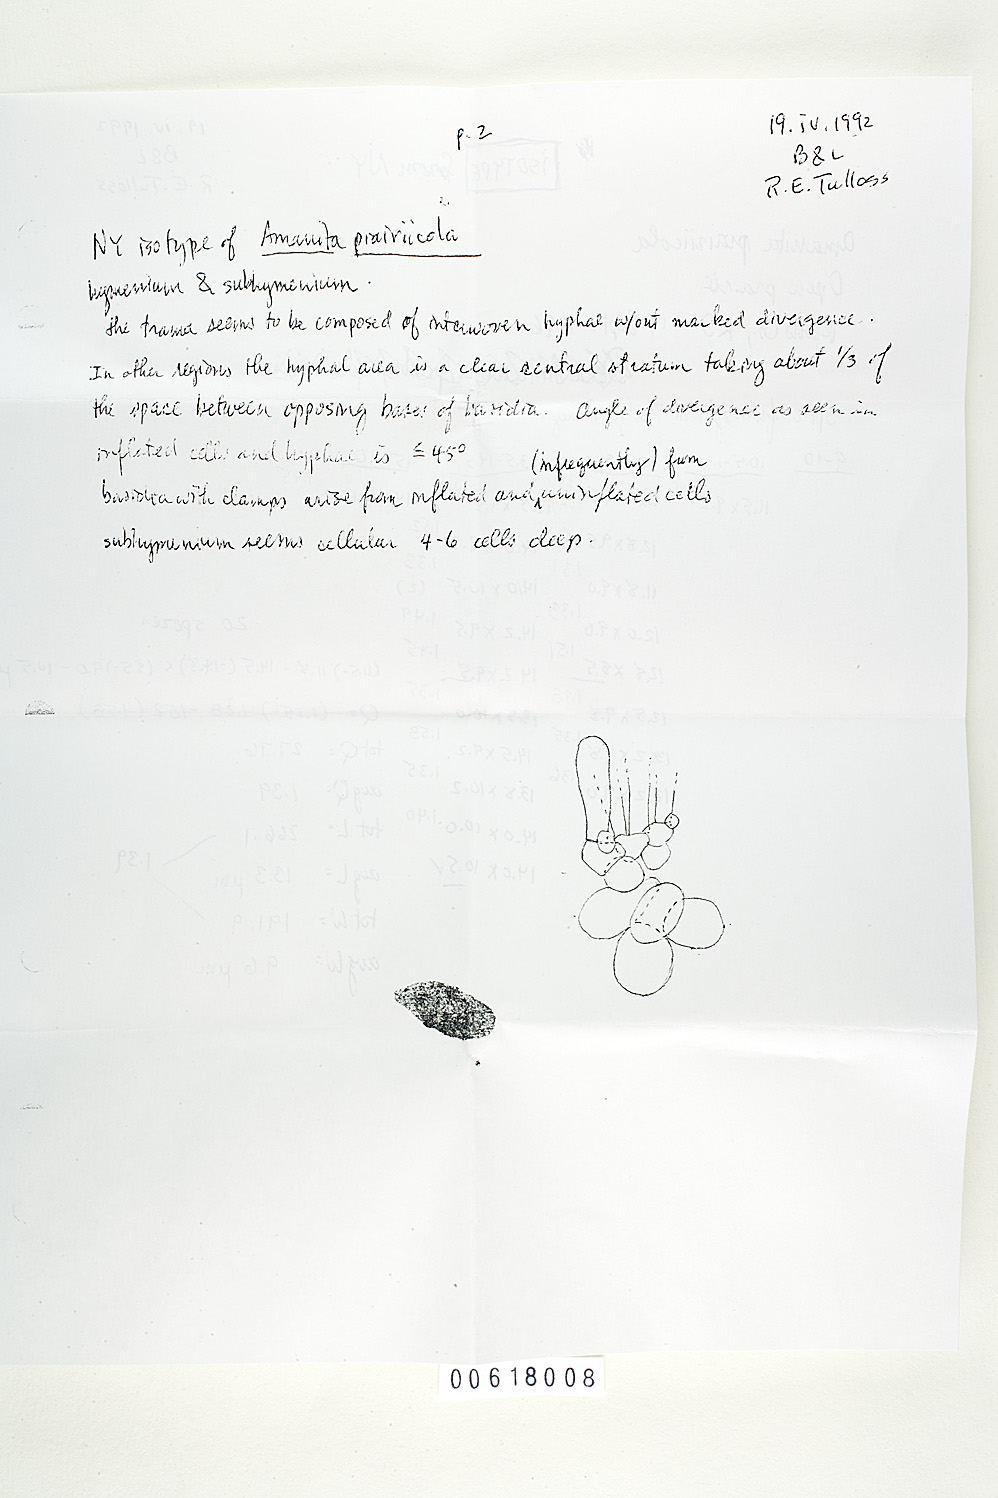 p. 2
19. iv. 1992
B & L
R. E. Tulloss
NY isotype of Amanita prairiicola
hymenium & subhymenium.
The trama seems to be composed of interwoven hyphae w/out marked divergence.
In other regions the hyphal area is a clear central stratum taking about 1/3 of
the space between opposing bases of basidia. Angle of divergence as seen in
inflated cells and hyphae is ≤ 45°
(infrequently) from
basidia with clamps arise from inflated and uninflated cells
subhymenium seems cellular 4-6 cells deep.
00618008